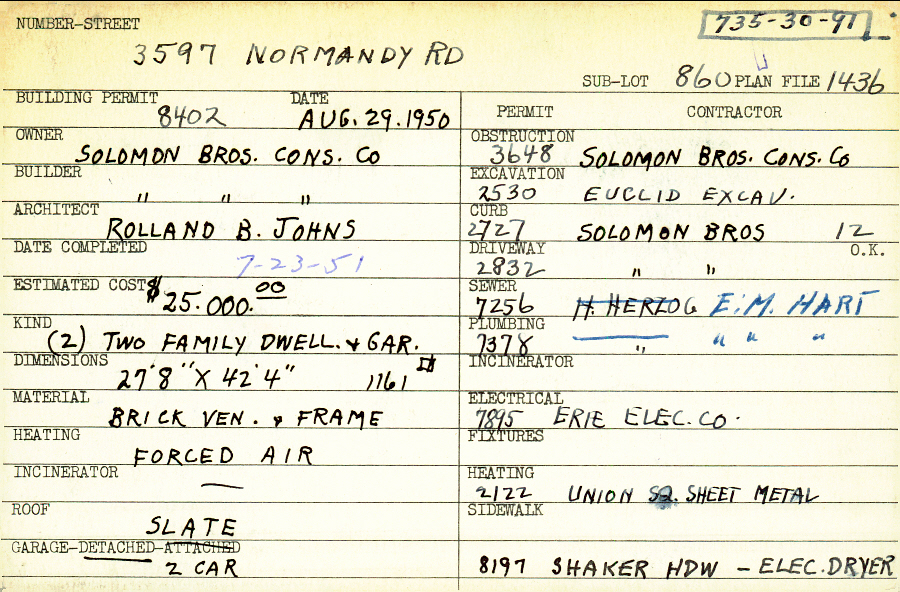 NUMBER-STREET
735-30-91
3597 NORMANDY RD
SUB-LOT 860 PLAN FILE 1436
BUILDING PERMIT DATE
8402 AUG. 29. 1950
OWNER
SOLOMON BROS. CONS. CO
BUILDER
" " "
ARCHITECT
ROLLAND B. JOHNS
DATE COMPLETED
7-23-51
ESTIMATED COST $ 25.000.00
KIND
(2) TWO FAMILY DWELL. & GAR.
DIMENSIONS
27'8" X 42'4" 1161
MATERIAL
BRICK VEN. & FRAME
HEATING
FORCED AIR
INCINERATOR
—
ROOF
SLATE
GARAGE-DETACHED-ATTACHED
2 CAR
PERMIT CONTRACTOR
OBSTRUCTION
3648 SOLOMON BROS. CONS. CO
EXCAVATION
2530 EUCLID EXCAV.
CURB
2727 SOLOMON BROS 12
DRIVEWAY O.K.
2832 " "
SEWER
7256 H. HERZOG E.M. HART
PLUMBING
7378 " " " "
INCINERATOR
ELECTRICAL
7895 ERIE ELEC. CO.
FIXTURES
HEATING
2122 UNION SQ. SHEET METAL
SIDEWALK
8197 SHAKER HDW - ELEC. DRYER